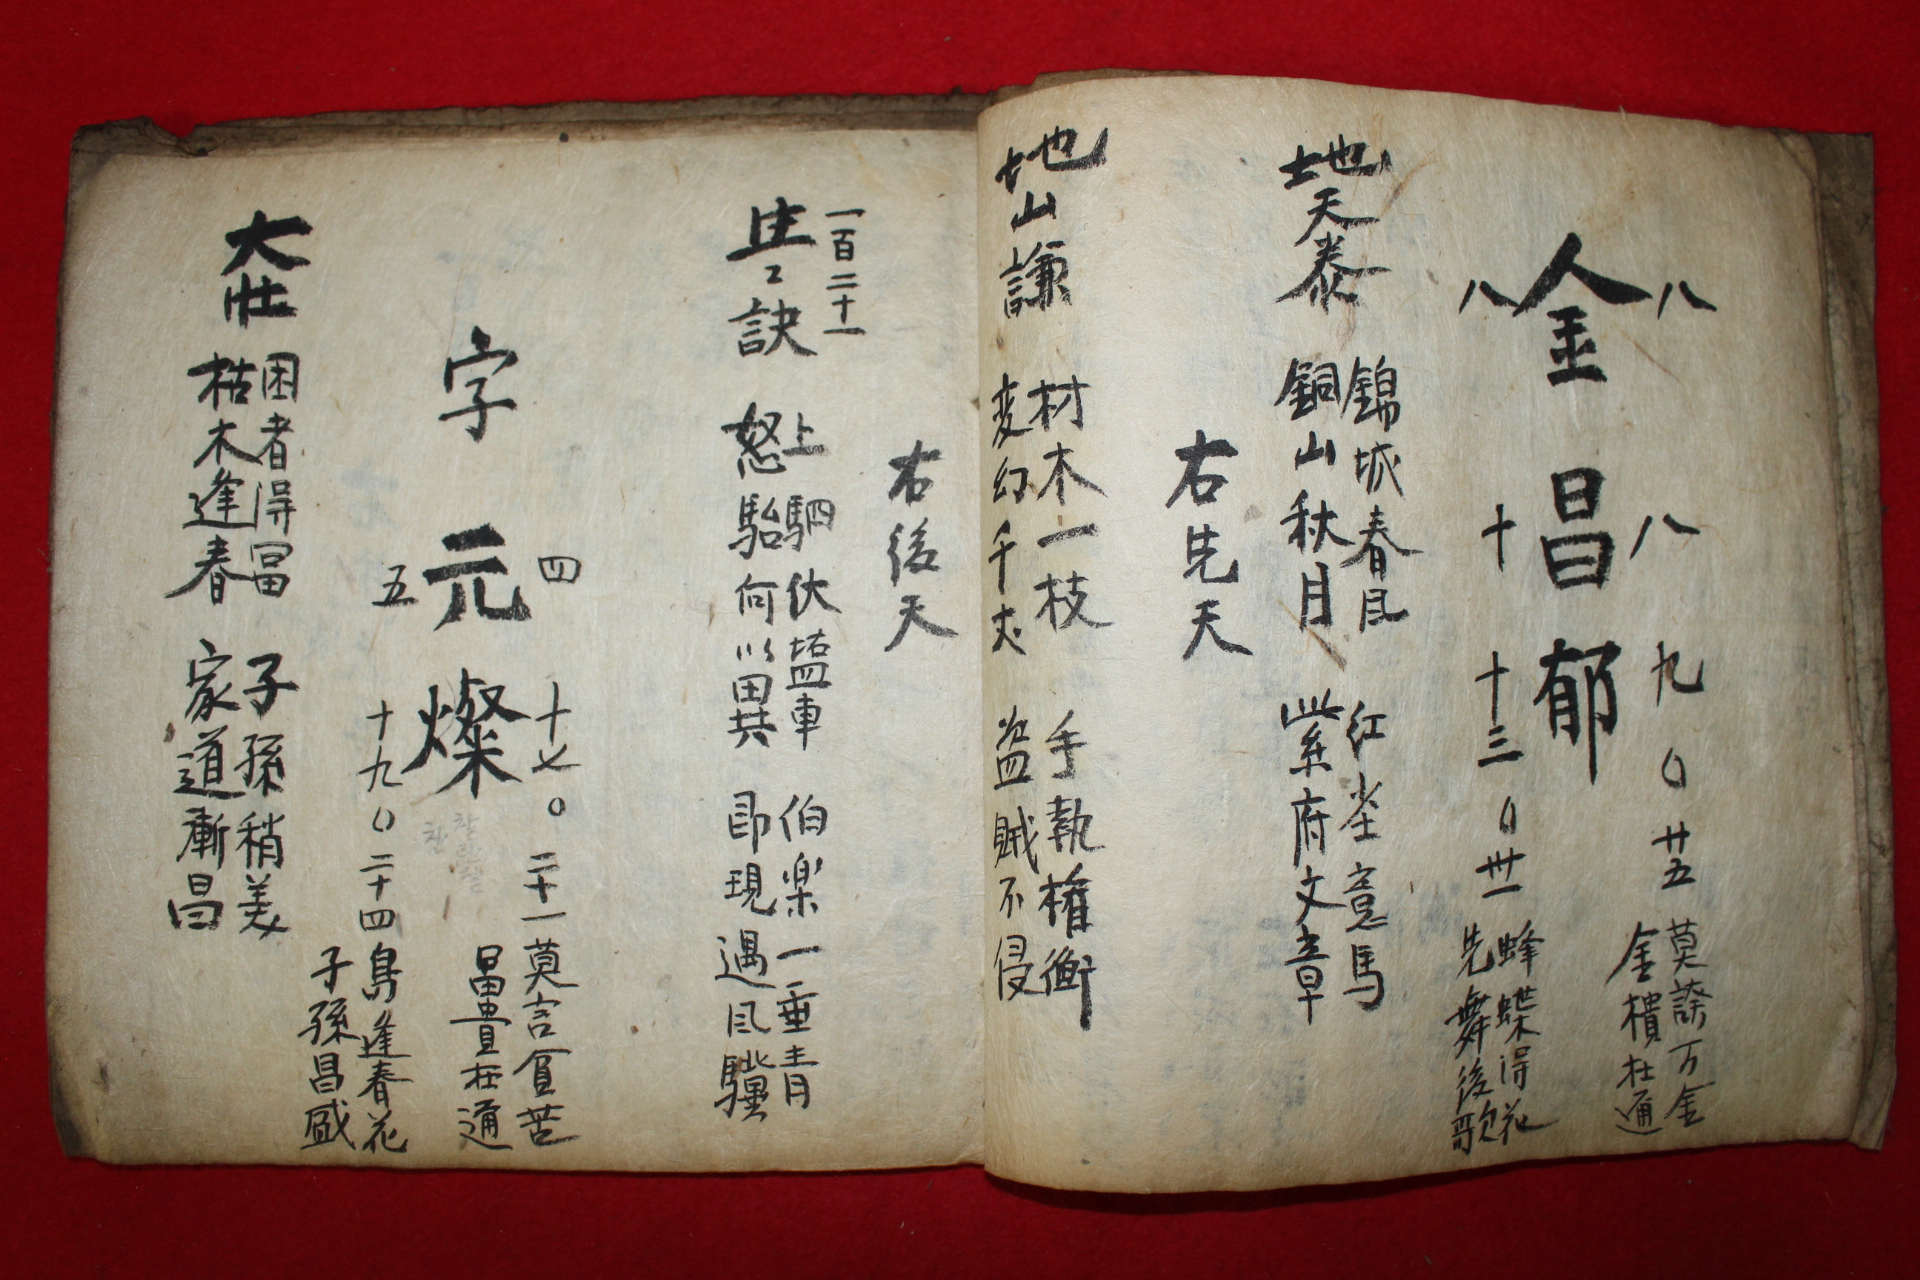 八 八 九 〇 廿五
莫誇万金
金樻杜通
金昌郁
八 十 十三 〇 卅一
蜂蝶得花
先舞後歌
地天泰
錦城春風
銅山秋月
紅塵意馬
紫府文章
右先天
地山謙
材木一枝
変幻千
手執權衡
盗賊不侵
右後天
一百二十一
生生訣
上駟伏塩車
怒駘何以異
伯楽一垂青
即現遇風驥
四 十七〇 二十一
莫言貧苦
冨貴在通
字元燦
五 十九〇 二十四
鳥逢春花
子孫昌盛
大壯
困者得冨
枯木逢春
子孫稍美
家道漸昌